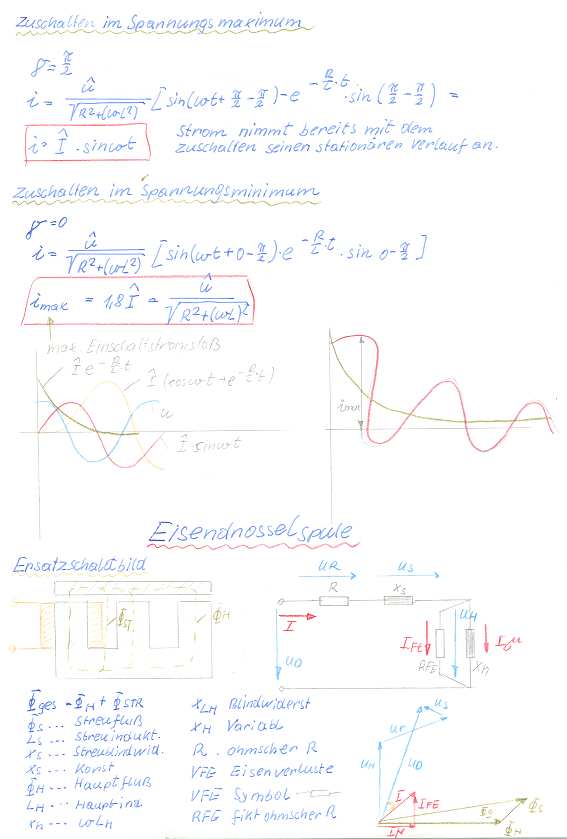 Zuschalten im Spannungsmaximum
γ = π/2
i = û/√(R²+(ωL²) [sin(ωt + π/2 - π/2) - e^(-R/L·t) · sin(π/2 - π/2) =
i = Î · sinωt
Strom nimmt bereits mit dem
zuschalten seinen stationären Verlauf an.
Zuschalten im Spannungsminimum
γ = 0
i = û/√(R²+(ωL²) [sin(ωt + 0 - π/2) · e^(-R/L·t) · sin 0 - π/2]
imax = 1,8 Î = û/√(R²+(ωL)²
max. Einschaltstromstoß
Î e^(-R/L·t)
Î (cosωt + e^(-R/L·t)
u
Î sinωt
imax
Eisendrosselspule
Ersatzschaltbild
ΦST
ΦH
uR
uS
R
XS
I
UD
IFE
RFE
UH
XH
Iμ
Φges = ΦH + ΦSTR
ΦS ... Streufluß
LS ... Streuindukt.
XS ... Streublindwid.
XS ... Konst
ΦH ... Hauptfluß
LH ... Hauptind
XH ... ωLH
XLH Blindwiderst
XH Variabl
R . ohmscher R
VFE Eisenverluste
VFE Symbol
RFE fikt ohmscher R
uS
ur
UH
UD
I
IFE
ΦS
ΦS
ΦH